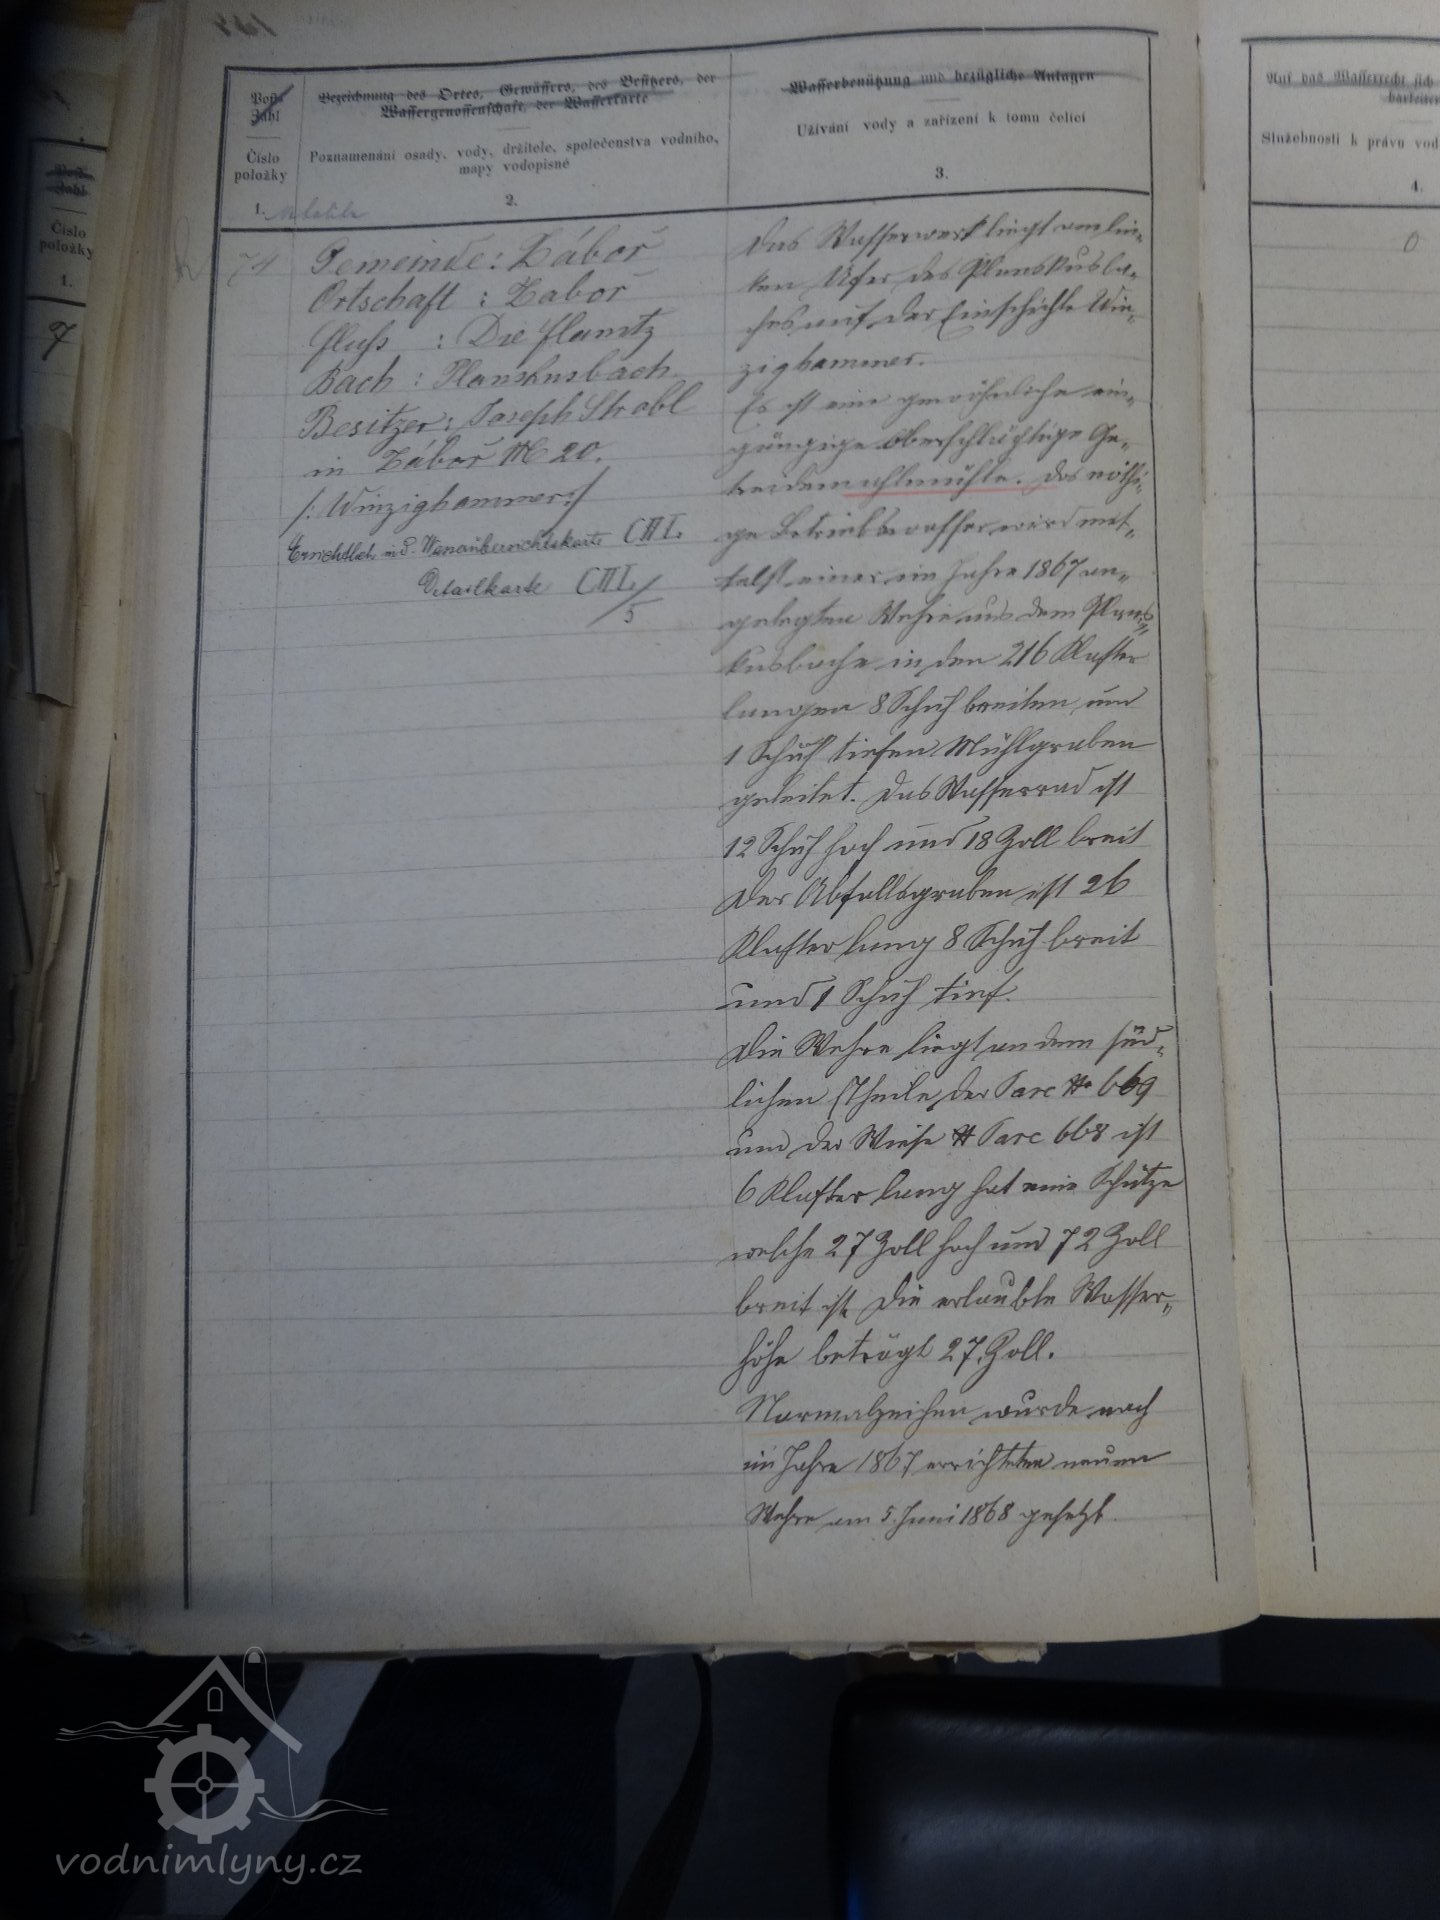 Post-
Zahl
Číslo
položky
1.
Bezeichnung des Ortes, Gewässers, des Besitzers, der
Wassergenossenschaft, der Wasserkarte
Poznamenání osady, vody, držitele, společenstva vodního,
mapy vodopisné
2.
Wasserbenützung und bezügliche Anlagen
Užívání vody a zařízení k tomu čelící
3.
Auf das Wasserrecht sich
Služebnosti k právu vod
4.
Post-
Zahl
Číslo
položky
1.
7
74
Gemeinde: Záboř
Ortschaft : Zaboř
Fluss : Die Flanitz
Bach : Planskusbach
Besitzer: Joseph Strobl
in Záboř № 20.
/: Winzighammer :/
Ersichtlich in d. Wasserübersichtskarte CIII.
Detailkarte CIII/5
Das Wasserwerk liegt am lin-
ken Ufer des Planskusba-
ches auf der Einschichte Win-
zighammer.
Es ist eine gewöhnliche ein-
gängige oberschlächtige Ge-
treidemahlmühle. Das nöthi-
ge Betriebswasser wird mit-
telst einer im Jahre 1867 an-
gelegten Wehre aus dem Plans-
kusbache in den 216 Klafter
langen 8 Schuh breiten und
1 Schuh tiefen Mühlgraben
geleitet. Das Wasserrad ist
12 Schuh hoch und 18 Zoll breit
Der Abfallsgraben ist 26
Klafter lang 8 Schuh breit
und 1 Schuh tief.
Die Wehre liegt an dem süd-
lichen Theile der Parc № 669
und der Wiese № Parc 668 ist
6 Klafter lang hat eine Schütze
welche 27 Zoll hoch und 72 Zoll
breit ist. Die erlaubte Wasser-
höhe beträgt 27 Zoll.
Normalzeichen wurde nach
im Jahre 1867 errichteten neuen
Wehre am 5. Juni 1868 gesetzt.
0
vodnimlyny.cz